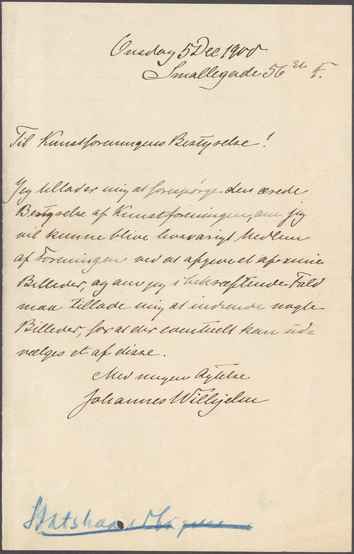 Onsdag 5 Dec 1900
Smallegade 56
Til Kunstforeningens Bestyrelse!
Jeg tillader mig at forespørge den ærede
Bestyrelse af Kunstforeningen, om jeg
vil kunne blive livsvarigt Medlem
af Foreningen ved at afgive et af mine
Billeder, og om jeg i bekræftende Fald
maa tillade mig at indsende nogle
Billeder, for at der eventuelt kan ud-
vælges et af disse.
Med megen Agtelse
Johannes Wilhjelm